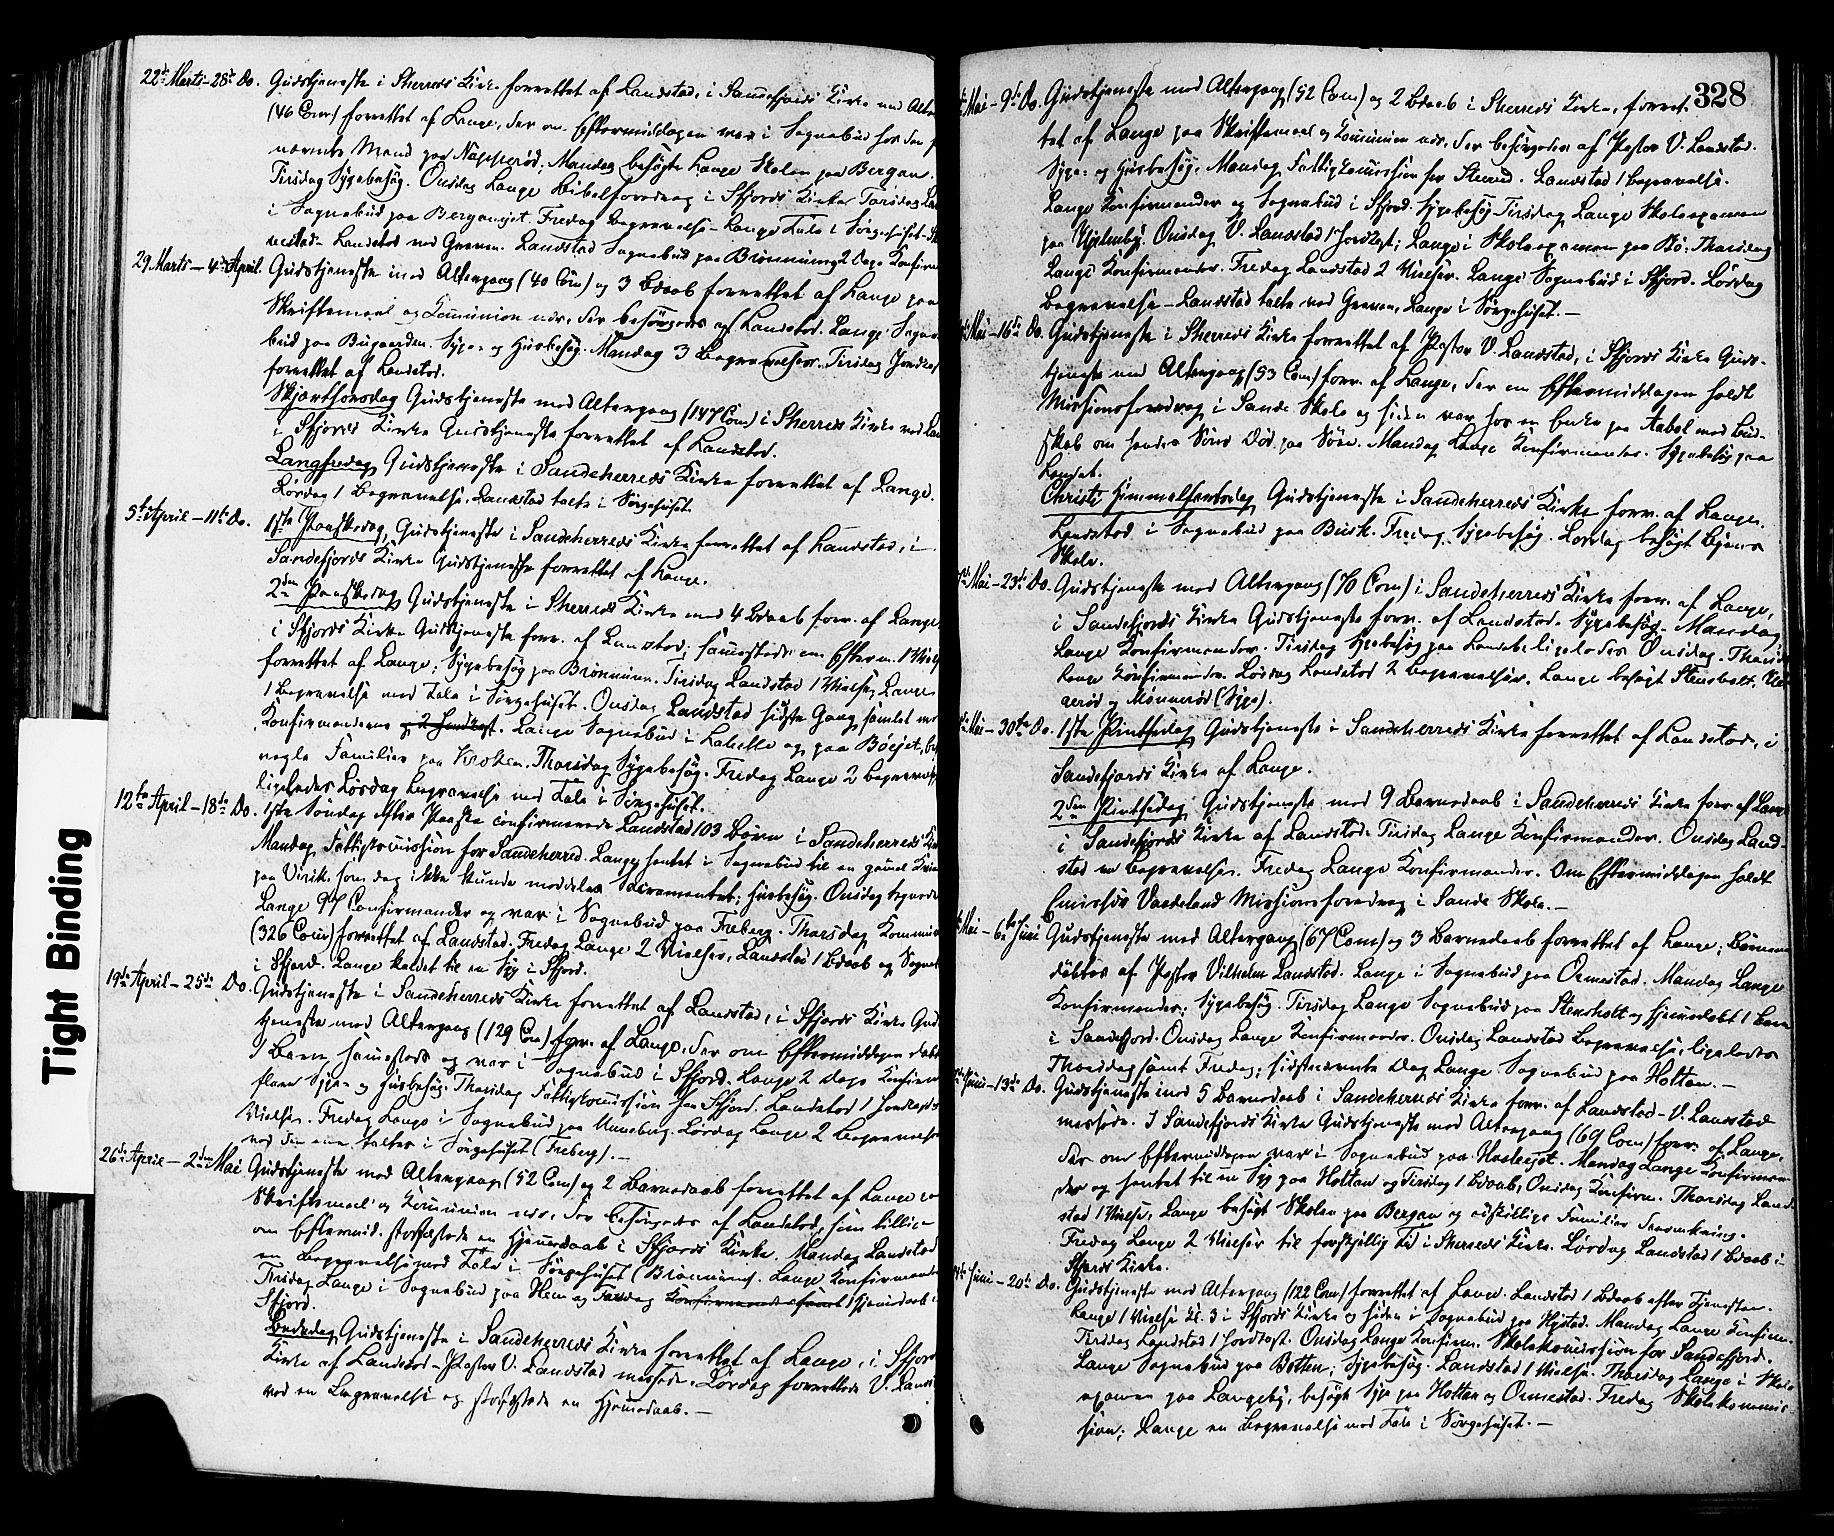 22de Marts - 28de Do. Gudstjeneste i Sherreds Kirke forrettet af Landstad, i Sandefjords Kirke med Alter
(46 Com) forrettet af Lange, der om Eftermiddagen var i Sognebud hos den
nævnte Mand paa Napperød; Mandag besøgte Lange Skolen paa Bergan.
Tirsdag Sygebesøg. Onsdag Lange Bibelforedrag i Sfjords Kirke Torsdag La
i Sognebud paa Berganejet. Fredag Begravelse - Lange Tale i Sørgehuset
Landstad ved Graven. Landstad Sognebud paa Brønnum 2 Dage Konfirm
29 Marts - 4de April. Gudstjeneste med Altergang (40 Com) og 3 Bdaab forrettet af Lange paa
Skriftemaal og Communion nær, der besørgedes af Landstad. Lange Sogne
bud paa Bugaarden. Syge- og Husbesøg. Mandag 3 Begravelser. Tirsdag Jordkast
forrettet af Landstad.
Skjærthorsdag Gudstjeneste med Altergang (147 Com) i Sherreds Kirke ved La
i Sfjords Kirke Gudstjeneste forrettet af Landstad.
Langfredag Gudstjeneste i Sandeherreds Kirke forrettet af Lange.
Lørdag 1 Begravelse, Landstad talte i Sørgehuset.
5te April - 11te Do. 1ste Paaskedag, Gudstjeneste i Sandeherreds Kirke forrettet af Landstad, i
Sandefjords Kirke Gudstjeneste forrettet af Lange.
2den Paaskedag Gudstjeneste i Sherreds Kirke med 4 Bdaab forr. af Lange
i Sfjords Kirke Gudstjeneste forr. af Landstad; sammesteds om Efterm. 1 Viels
forrettet af Lange. Sygebesøg paa Brønnum. Tirsdag Landstad 1 Vielse, Lange
1 Begravelse med Tale i Sørgehuset. Onsdag Landstad sidste Gang samlet m
Konfirmanderne og 2 Jordkast. Lange Sognebud i Lahelle og paa Bøejet, be
nogle Familier paa Kroken. Thorsdag Sygebesøg. Fredag Lange 2 Begravels
ligeledes Lørdag Begravelse med Tale i Sørgehuset.
12te April - 18de Do. 1ste Søndag efter Paaske confirmerede Landstad 103 Børn i Sandeherreds Ki
Mandag Fattigkomission for Sandeherred. Lange hentet i Sognebud til en gamel Kvin
paa Virik, som dog ikke kunde meddeles Sacramentet; husbesøg. Onsdag
Lange 97 Confirmander og var i Sognebud paa Freberg. Thorsdag Kommun
(326 Com) forrettet af Landstad. Fredag Lange 2 Vielser, Landstad 1 Bdaab og Sogneb
i Sfjord. Lange kaldet til en Syg i Sfjord.
19de April - 25de Do. Gudstjeneste i Sandeherreds Kirke forrettet af Landstad, i Sfjords Kirke Gud
tjeneste med Altergang (129 Com) forr. af Lange, der om Eftermiddagen døbt
1 Barn sammesteds og var i Sognebud i Sfjord. Lange 2 Dage Konfirm
flere Syge- og Husbesøg. Thorsdag Fattigkomission for Sfjord. Landstad 1 Jordkast
Vielse. Fredag Lange i Sognebud paa Unneberg. Lørdag Lange 2 Begravelser
ved den ene taltes i Sørgehuset (Freberg). -
26de April - 2den Mai Gudstjeneste med Altergang (52 Com) og 2 Barnedaab forrettet af Lange
Skriftemaal og Communion nær, der besørgedes af Landstad, som tillige
om Eftermid. stadfæstede en Hjemmedaab i Sfjords Kirke. Mandag Landstad
en Begravelse med Tale i Sørgehuset (Brønnum). Lange Konfirmander
Tirsdag Lange i Sognebud paa Hem og Fredag Konfirmander samt 1 Hjemmedaab i
Sfjord.
Bededag Gudstjeneste i Sandeherreds Kirke forrettet af Lange, i Sfjord
Kirke af Landstad - Pastor V. Landstad messede. Lørdag forrettede V. Lands
ved en Begravelse og stadfæstede en Hjemmedaab. -
328
Mai - 9de Do. Gudstjeneste med Altergang (52 Com) og 2 Bdaab i Sherreds Kirke, forret-
tet af Lange paa Skriftemaal og Communion nær, der besørgedes af Pastor V. Landstad.
Syge- og Husbesøg. Mandag Fattigkomission for Sherred. Landstad 1 Begravelse.
Lange Konfirmander og Sognebud i Sfjord. Sygebesøg Tirsdag Lange Skoleexamen
paa Hjelmby. Onsdag V. Landstad 1 Jordkast; Lange i Skoleexamen paa Bø. Thorsdag
Lange Konfirmander. Fredag Landstad 2 Vielser. Lange Sognebud i Sfjord. Lørdag
Begravelse - Landstad talte ved Graven, Lange i Sørgehuset. -
Mai - 16de Do. Gudstjeneste i Sherreds Kirke forrettet af Pastor V. Landstad, i Sfjords Kirke Guds-
tjeneste med Altergang (53 Com) forr. af Lange, der om Eftermiddagen holdt
Missionsforedrag i Sande Skole og siden var hos en Enke paa Aabol med Bud-
skab om hendes Søns Død paa Søen. Mandag Lange Konfirmander. Sygebesøg paa
Landet.
Christi Himmelfartsdag Gudstjeneste i Sandeherreds Kirke forr. af Lange.
Landstad i Sognebud paa Busk. Fredag Sygebesøg. Lørdag besøgt Byens
Skole.
Mai - 23de Do. Gudstjeneste med Altergang (70 Com) i Sandeherreds Kirke forr. af Lange,
i Sandefjords Kirke Gudstjeneste forr. af Landstad. Sygebesøg. Mandag
Lange Konfirmander. Tirsdag Sygebesøg paa Landet ligeledes Onsdag. Thorsda
Lange Konfirmander. Lørdag Landstad 2 Begravelser. Lange besøgt Stensholt,
og Mønnerød (Syge).
Mai - 30te Do. 1ste Pintsedag Gudstjeneste i Sandeherreds Kirke forrettet af Landstad, i
Sandefjords Kirke af Lange.
2den Pintsedag Gudstjeneste med 9 Barnedaab i Sandeherreds Kirke forr. af Lange
i Sandefjords Kirke af Landstad. Tirsdag Lange Konfirmander. Onsdag Land-
stad en Begravelse. Fredag Lange Konfirmander. Om Eftermiddagen holdt
Emissær Vaadeland Missionsforedrag i Sande Skole. -
Mai - 6te Juni Gudstjeneste med Altergang (67 Com) og 3 Barnedaab forrettet af Lange; Børnene
døbtes af Pastor Vilhelm Landstad. Lange i Sognebud paa Ormestad. Mandag Lange
Konfirmander; Sygebesøg. Tirsdag Lange Sognebud paa Stensholt og hjemmedøbt 1 Barn
i Sandefjord. Onsdag Lange Konfirmander. Onsdag Landstad Begravelse, ligeledes
Thorsdag samt Fredag; sidstnævnte Dag Lange Sognebud paa Holtan. -
Juni - 13de Do. Gudstjeneste med 5 Barnedaab i Sandeherreds Kirke forr. af Landstad - V. Landstad
messede. I Sandefjords Kirke Gudstjeneste med Altergang (69 Com) forr. af Lange,
der om Eftermiddagen var i Sognebud paa Haslerejet. Mandag Lange Konfirman
der og hentet til en Syg paa Holtan og Tirsdag 1 Bdaab, Onsdag Konfirm. Thorsdag Land
stad 1 Vielse, Lange besøgt Skolen paa Bergan og adskillige Familier
Fredag Lange 2 Vielser til forskjellig Tid i Sherreds Kirke. Lørdag Landstad 1 Bdaab i
Sfjords Kirke.
Juni - 20de Do. Gudstjeneste med Altergang (122 Com) forrettet af Lange. Landstad 1 Bdaab efter Tjenesten.
Lange 1 Vielse Kl. 3 i Sfjords Kirke og siden i Sognebud paa Hystad. Mandag Lange Konfirm.
Tirsdag Landstad 1 Jordkast. Onsdag Lange Konfirm. Skolekomission for Sandefjord.
Lange Sognebud paa Botten; Sygebesøg. Landstad 1 Vielse. Thorsdag Lange i Skole
examen paa Langeby, besøgt Syge paa Holtan og Ormestad. Fredag Skolekommis
sion; Lange en Begravelse med Tale i Sørgehuset. -
Tight Binding